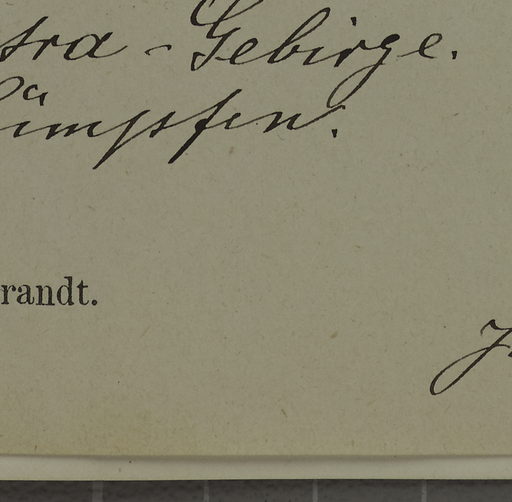 tra - Gebirge.
ümpfen.
randt.